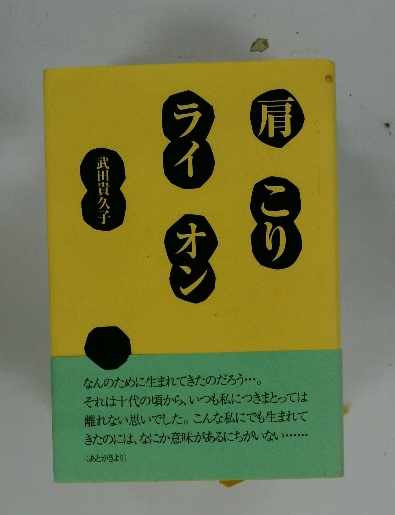 肩こり
ライオン
武田貴久子
なんのために生まれてきたのだろう…。
それは十代の頃から、いつも私につきまとっては
離れない思いでした。こんな私にでも生まれて
きたのには、なにか意味があるにちがいない……
（あとがきより）